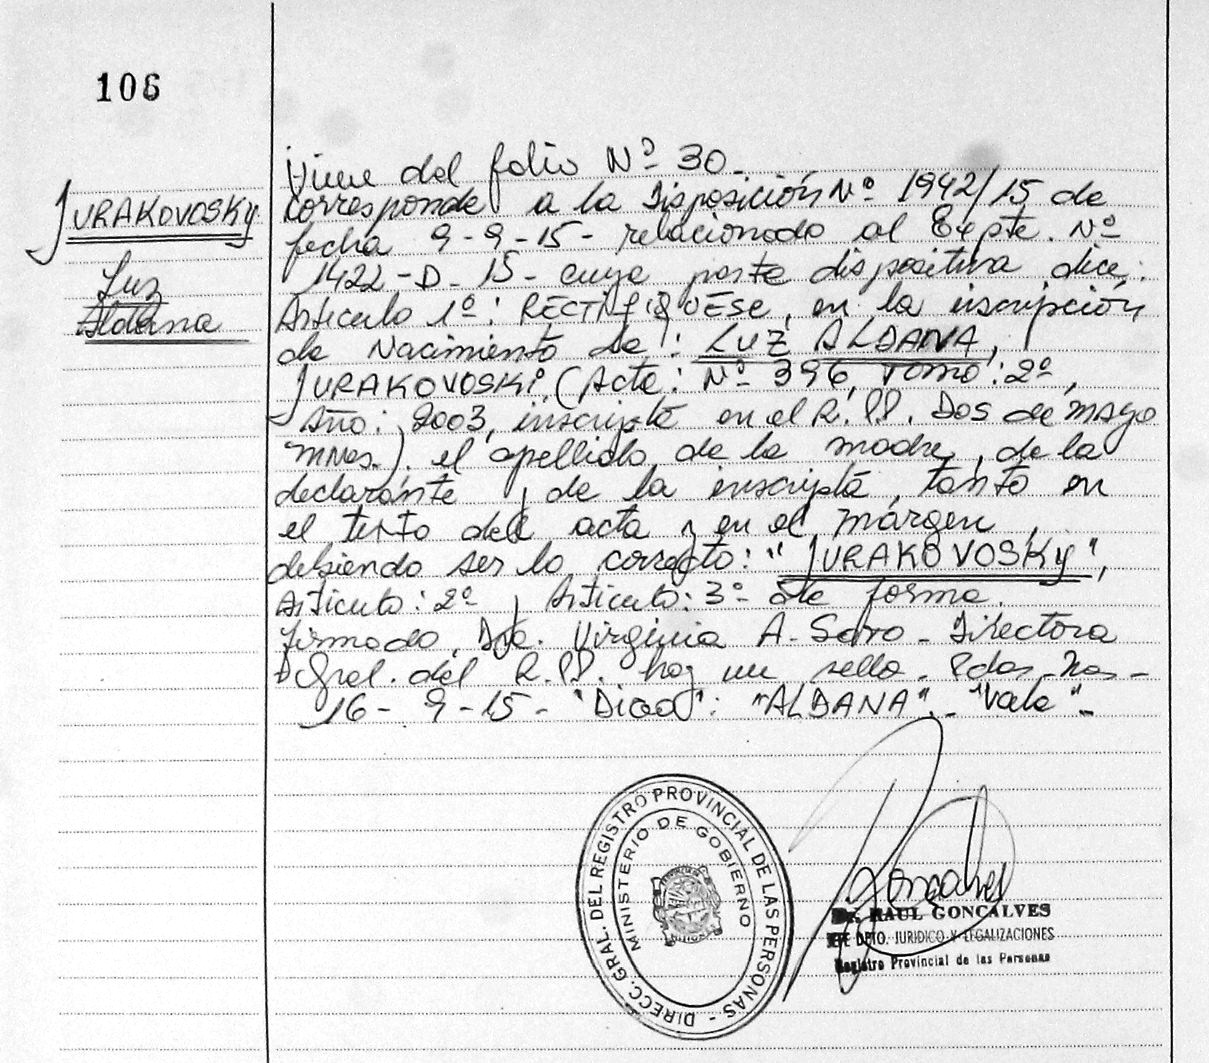 106
JURAKOVOSKY
Luz
Aldana
Viene del folio Nº 30-
corresponde a la Disposición Nº 1942/15 de
fecha 9-9-15- relacionado al Expte. Nº
1422-D-15- cuya parte dispositiva dice:
Articulo 1º: RECTIFIQUESE, en la inscripción
de Nacimiento de: LUZ ALDANA
JURAKOVOSKI (Acta: Nº 396, Tomo: 2º,
Año: 2003, inscripta en el R.PP. Dos de mayo
Mnes.). el apellido de la madre, de la
declarante y de la inscripta, tanto en
el texto del acta y en el márgen,
debiendo ser lo correcto: "JURAKOVOSKY",
Articulo: 2º y Articulo: 3º de forma.
firmado. Dra. Virginia A. - Directora
Gral. del R.PP. hay un sello. Pdas. Mnes-
16-9-15- : "ALDANA"- "Vale"-
DIRECC. GRAL. DEL REGISTRO PROVINCIAL DE LAS PERSONAS -
MINISTERIO DE GOBIERNO
Goncalves
Dr. RAUL GONCALVES
JEFE DPTO. JURIDICO Y LEGALIZACIONES
Registro Provincial de las Personas